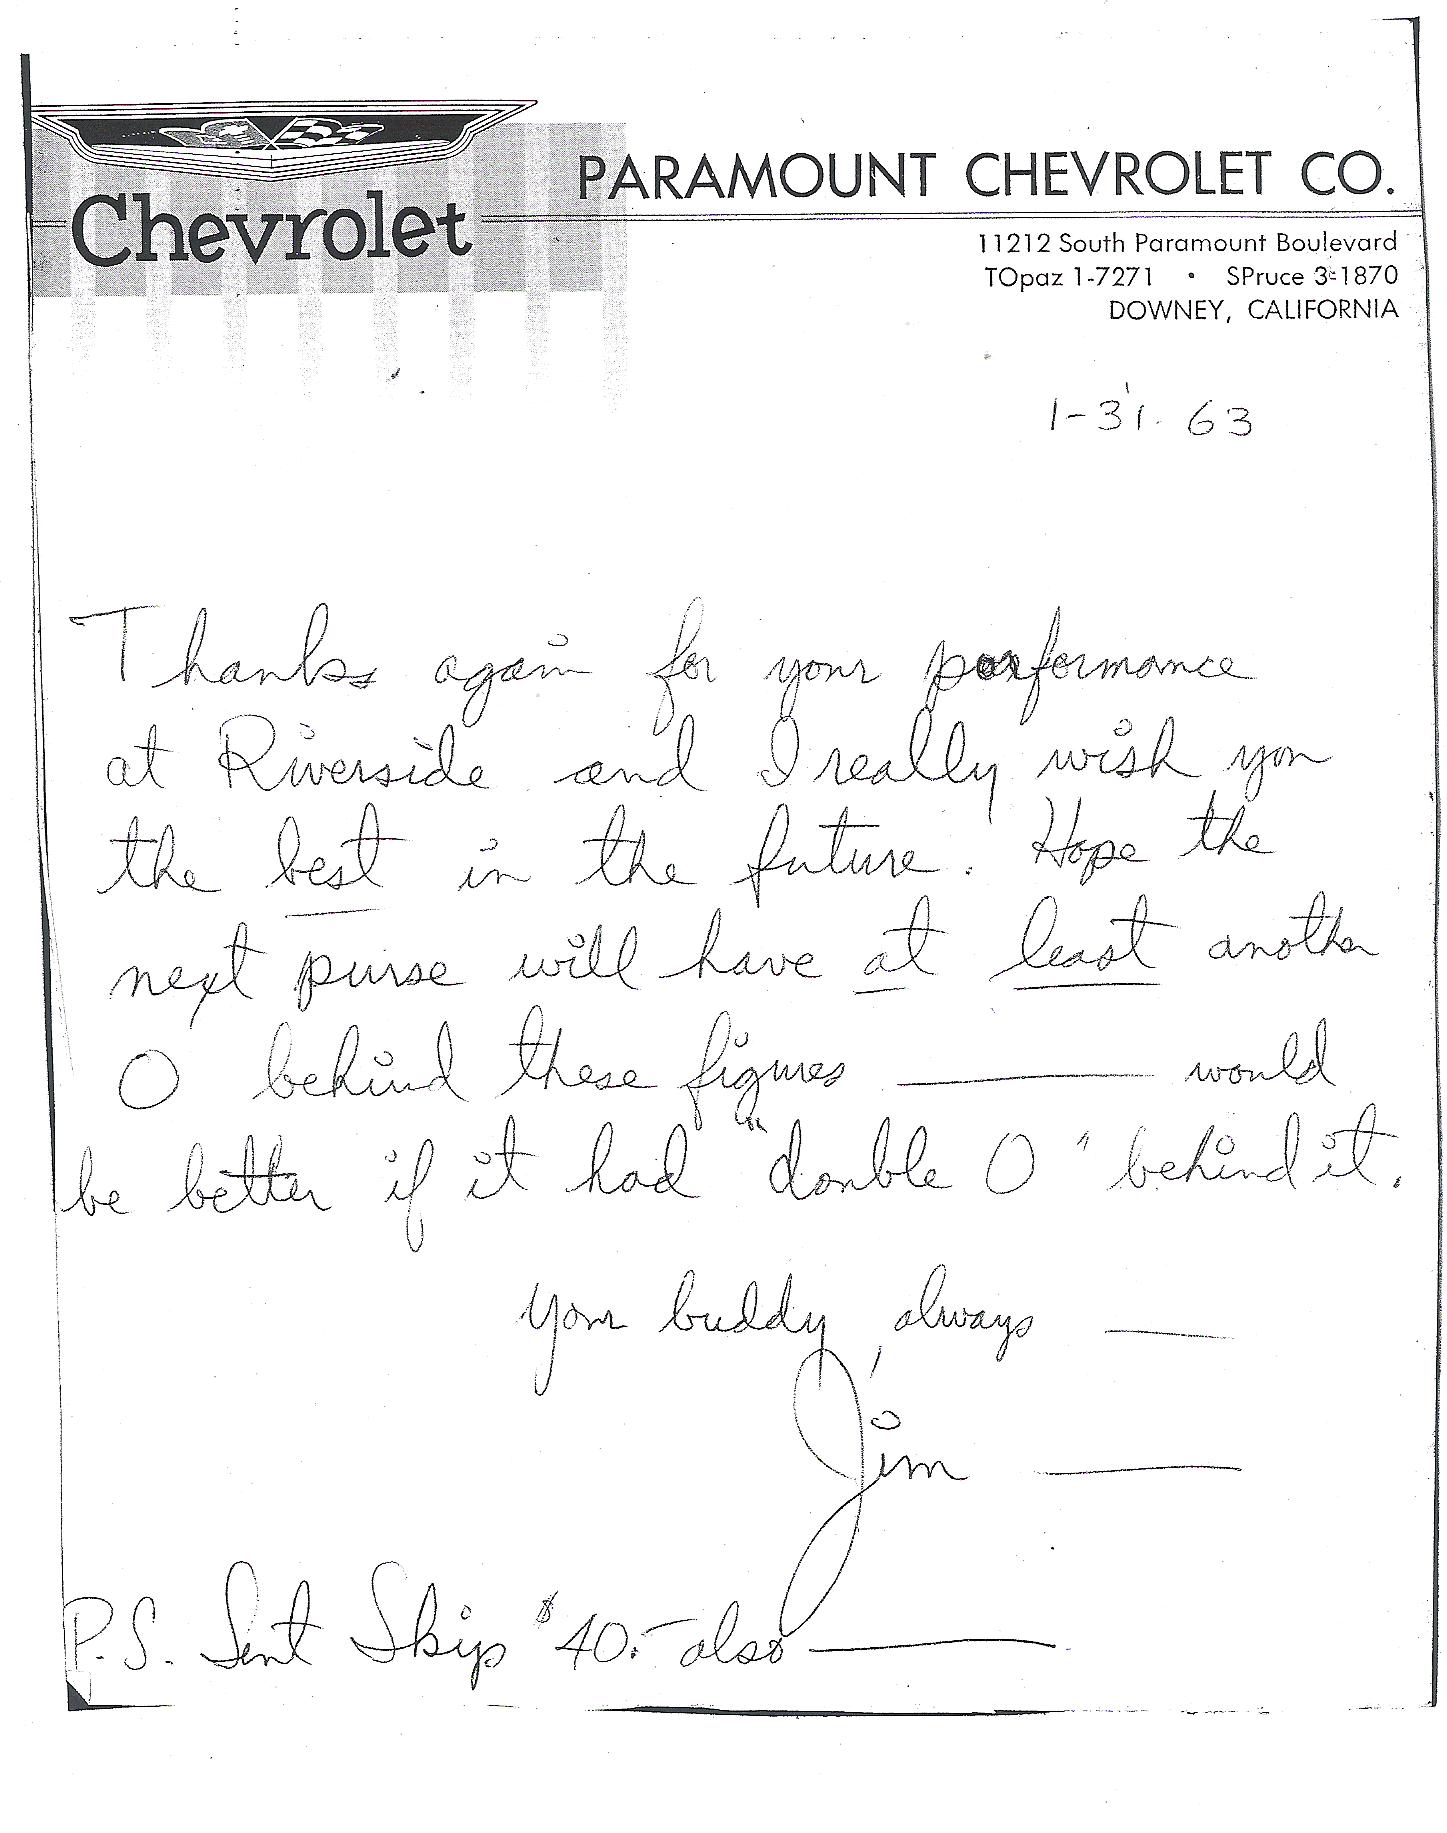 Chevrolet
PARAMOUNT CHEVROLET CO.
11212 South Paramount Boulevard
TOpaz 1-7271 • SPruce 3-1870
DOWNEY, CALIFORNIA
1-31-63
Thanks again for your performance
at Riverside and I really wish you
the best in the future. Hope the
next purse will have at least another
0 behind these figures — would
be better if it had "double 0" behind it.
Your buddy, always —
Jim —
P.S. Sent Skip $40.- also —